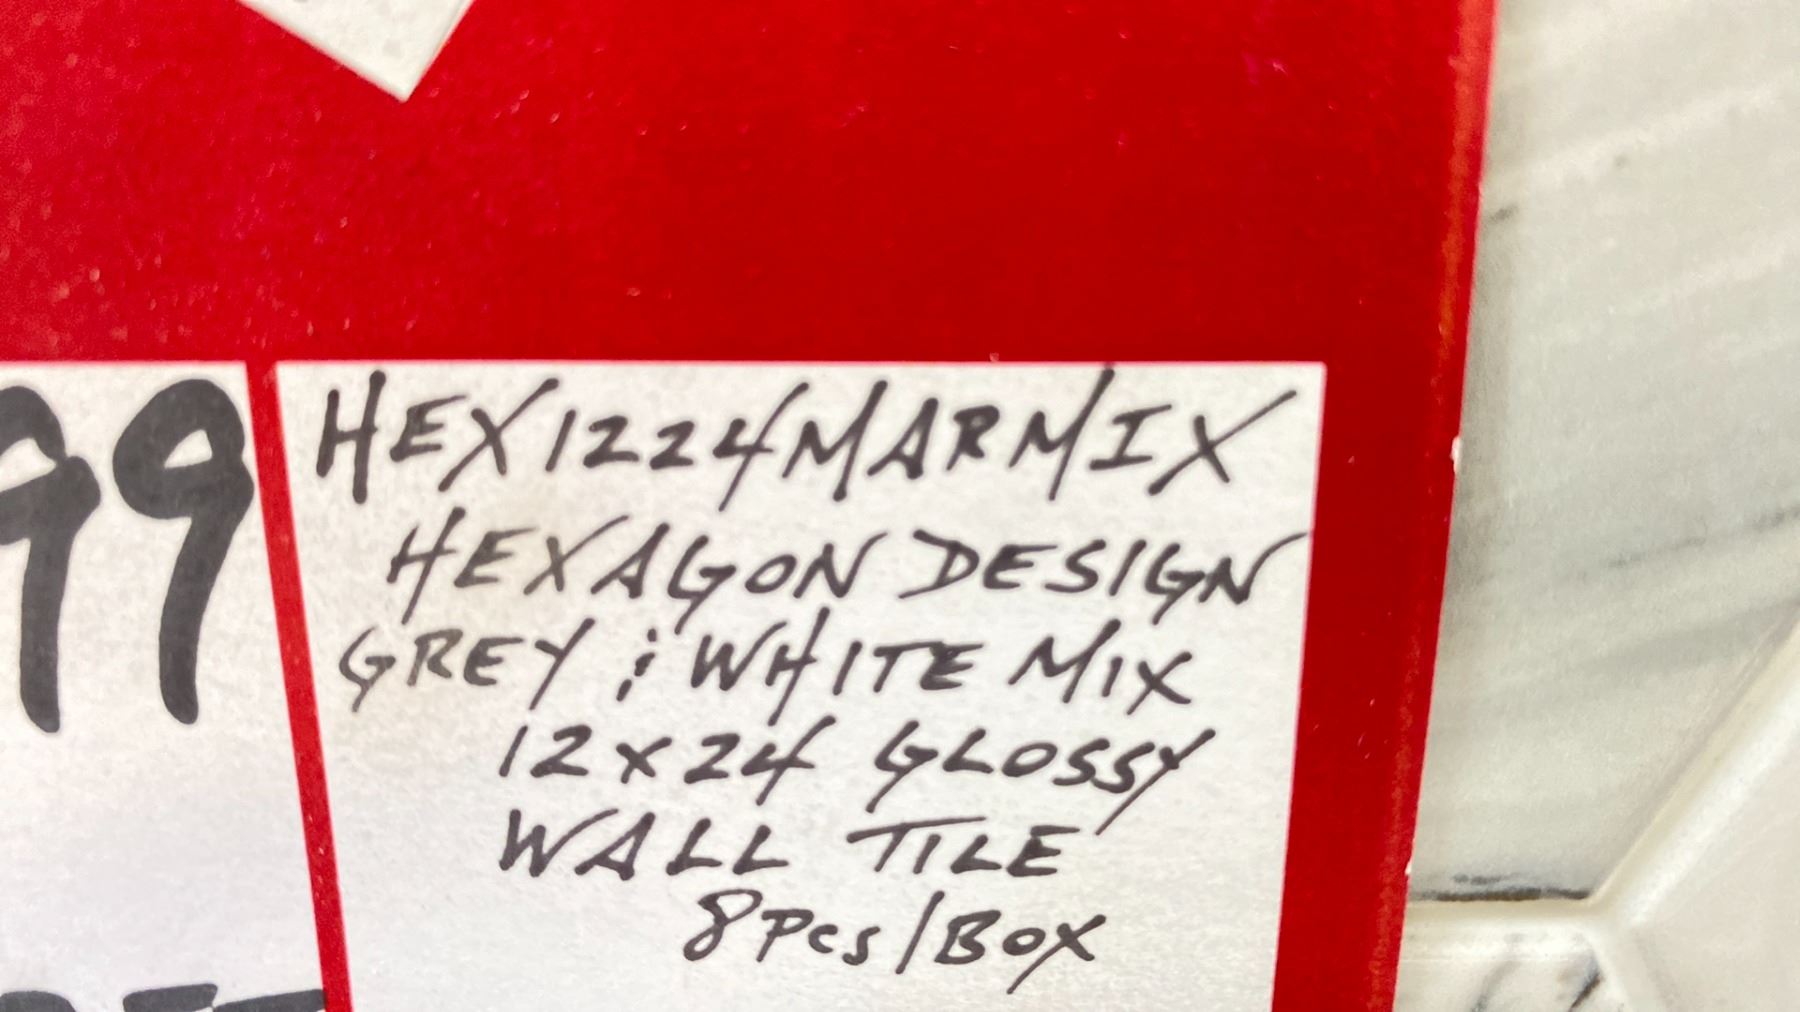 99
HEX1224MARMIX
HEXAGON DESIGN
GREY & WHITE MIX
12x24 GLOSSY
WALL TILE
8Pcs/BOX